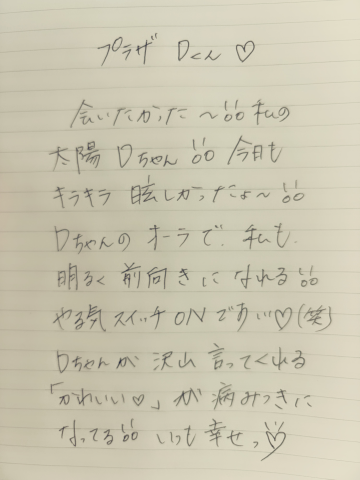 プラザ Dくん♡
会いたかった〜 私の
太陽 Dちゃん 今日も
キラキラ 眩しかったょ〜
Dちゃんの オーラで、私も、
明るく 前向きに なれる
やる気 スイッチ ON ですい♡(笑)
Dちゃんが 沢山 言ってくれる
「かわいい♡」が 病みつきに
なってる いつも 幸せっ♡